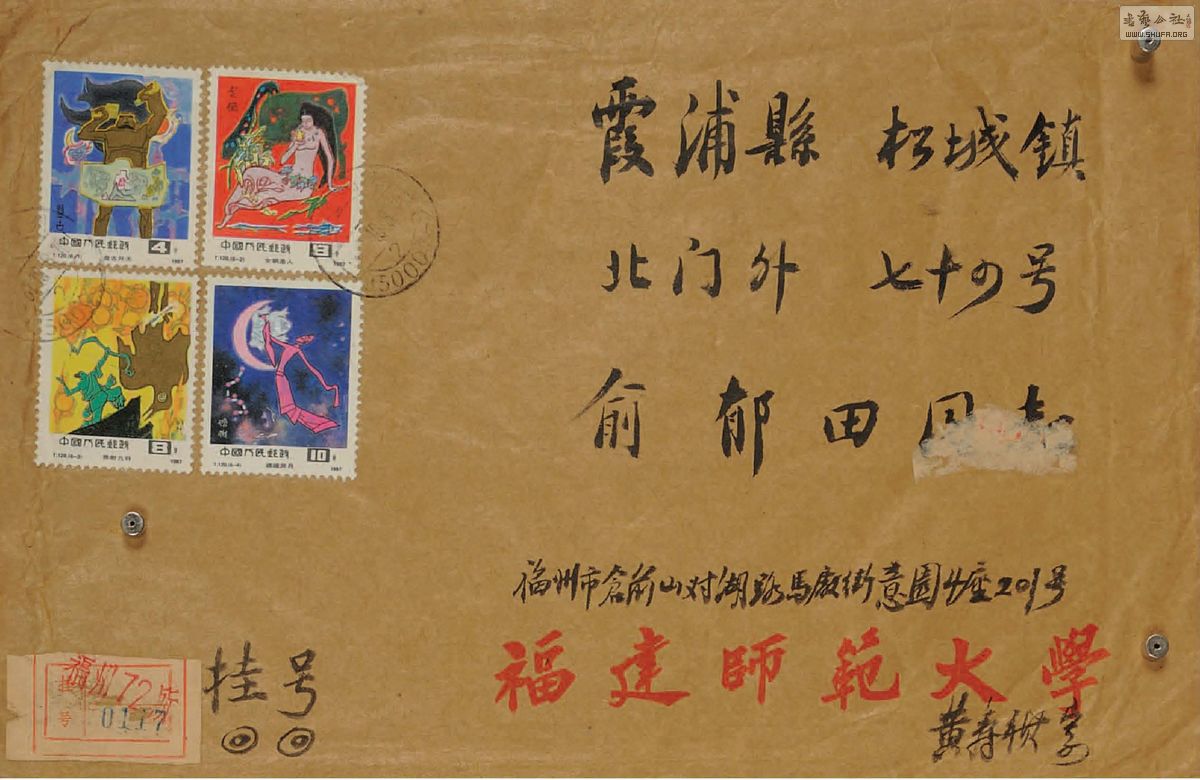 書藝公社
WWW.SHUFA.ORG
盘古
中国人民邮政 4分
T.120.(6-1) 盘古开天 1987
女媧
中国人民邮政 8分
T.120.(6-2) 女娲造人 1987
中国人民邮政 8分
T.120.(6-3) 羿射九日 1987
嫦娥
中国人民邮政 10分
T.120.(6-4) 嫦娥奔月 1987
霞浦縣 松城镇
北门外 七十四号
俞郁田同志
福州市倉前山对湖路馬廠街意園4座201号
福建師範大學
黄寿祺寄
挂号
福州72
号 0117